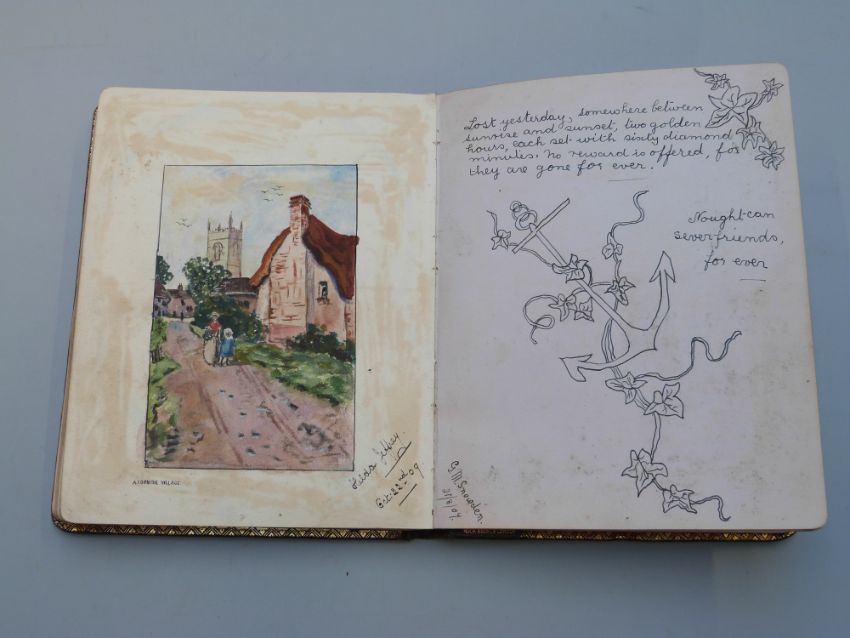 A CORNISH VILLAGE
Hilda
Oct 22nd 09
Lost yesterday, somewhere between
sunrise and sunset, two golden
hours, each set with sixty diamond
minutes. No reward is offered, for
they are gone for ever.
Nought can
sever friends,
for ever
G. M. Snowden.